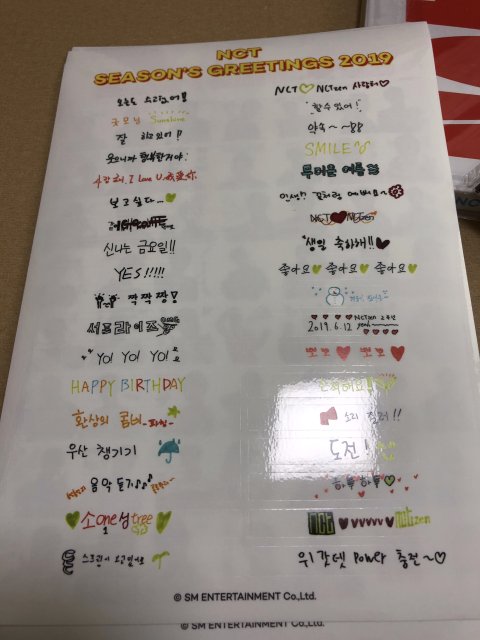 NCT
SEASON'S GREETINGS 2019
오늘도 수고했어!
굿모닝 Sunshine
잘 하고있어!
웃으니까 행복한거야!
사랑해, I Love U, 我爱你
보고싶다...
신나는 금요일!!
YES!!!!!
짝짝짝!
서프라이즈
YO! YO! YO!
HAPPY BIRTHDAY
환상의 콤비
우산 챙기기
음악 듣기♪♪
♥소one성tree♥
NCT♡NCTzen 사랑해♡
할수있어!
약속~~
SMILE
무더운 여름
NCT♥NCTzen
생일 축하해!!♥
좋아요♥ 좋아요♥ 좋아요♥
2019.6.12 NCTzen 2주년 yeah
뽀뽀♥ 뽀뽀♥
소리 질러!!
도전!
하트하트
NCT ♥vvvvv♥ NCTizen
위 갓 뎃 Power 충전~♡
© SM ENTERTAINMENT Co.,Ltd.
© SM ENTERTAINMENT Co.,Ltd.